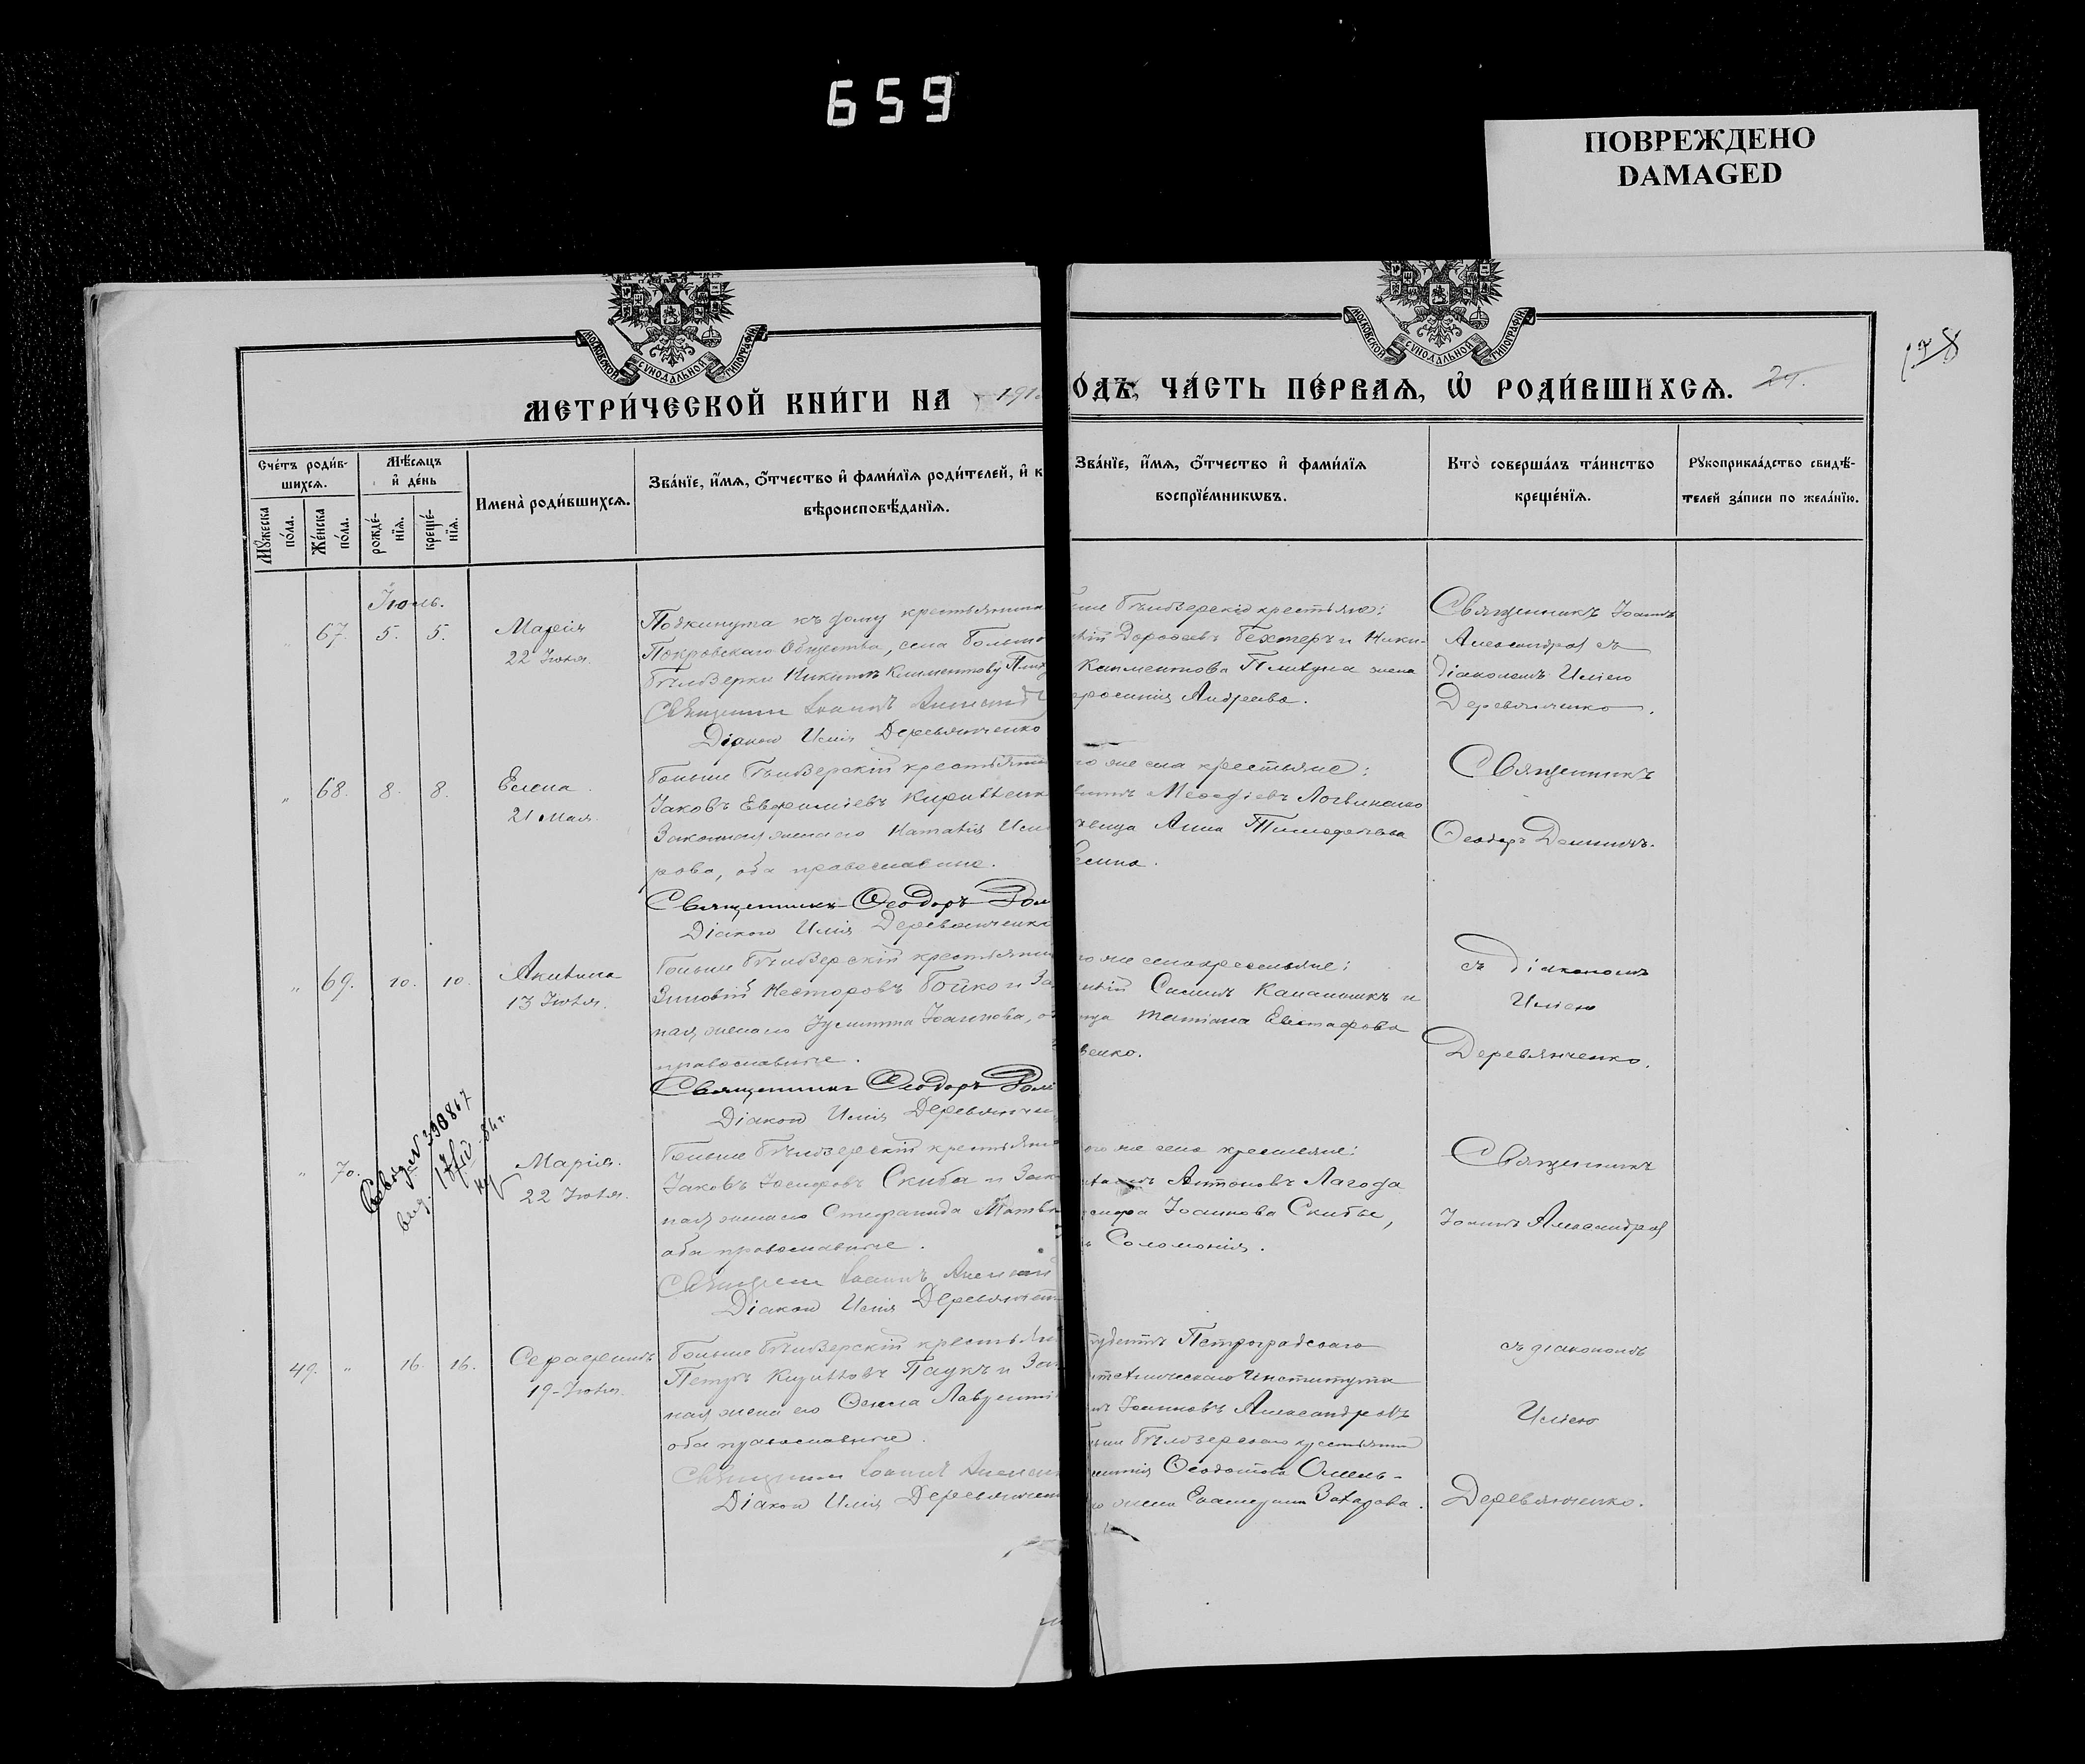 659
ПОВРЕЖДЕНО
DAMAGED
МОСКОВСКОЙ СѴНОДАЛЬНОЙ ТИПОГРАФІИ
МОСКОВСКОЙ СѴНОДАЛЬНОЙ ТИПОГРАФІИ
МЕТРИ́ЧЕСКОЙ КНИ́ГИ НА 191
ОДЪ, ЧА́СТЬ ПЕ́РВАѦ, Ѽ РОДИ́ВШИХСѦ. 29.
178
Сче́тъ роди́вшихсѧ.
Мѣ́сѧцъ и҆ де́нь
Мꙋ́жеска по́ла.
Же́нска по́ла.
рожде́нїѧ.
креще́нїѧ.
И҆мена̀ роди́вшихсѧ.
Зва́нїе, и҆́мѧ, ѻ҆́тчество и҆ фами́лїѧ роди́телей, и҆ к
вѣроисповѣ́данїѧ.
Зва́нїе, и҆́мѧ, ѻ҆́тчество и҆ фами́лїѧ
воспрїе́мникѡвъ.
Кто̀ соверша́лъ та́инство
креще́нїѧ.
Рꙋкоприкла́дство свидѣ́-
телей за́писи по жела́нїю.
Іюль.
67. 5. 5. Марія
22 Іюля.
Подкинута къ дому крестьянина
Покровскаго Общества, села Больше
Бѣлозерки Никитѣ Климентову Плих
Священник Іоаннъ Александ
Діакон Илія Деревянченко
Бѣлозерскіе крестьяне:
Дорофеевъ Бехтеръ и Ники-
Климентова жена
Андреева.
Священникъ Іоаннъ
Александров съ
діакономъ Иліею
Деревянченко.
" 68. 8. 8. Елена.
21 Мая.
Больше Бѣлозерскій крестьянин
Іаковъ Евфиміевъ Кириленк
Законная жена его
рова, оба православные.
Священникъ Ѳеодоръ Дом
Діакон Илія Деревянченко
го же села крестьяне:
Логвиненко
Анна Тимофеева
Священникъ
Ѳеодоръ
" 69. 10. 10. Акилина
13 Іюня.
Больше Бѣлозерскій крестьянин
Зиновій Несторовъ Бойко и За
ная жена его Іулитта Іоаннова, об
православные.
Священникъ Ѳеодоръ Дом
Діакон Илія Деревянчен
го же села крестьяне:
и
Татіана Евстафова
венко.
съ діакономъ
Иліею
Деревянченко.
" 70.
Свид. № 390867
выд.
Марія.
22 Іюля.
Больше Бѣлозерскій крестьянин
Іаковъ Іосифовъ Скиба и Зак
ная жена его Стефанида Матвѣ
оба православные.
Священник Іоаннъ Александ
Діакон Илія Деревянчен
ого же села крестьяне:
Антоновъ Лагода
Іоаннова Скибы,
Соломонія.
Священникъ
Іоаннъ Александров
49. " 16. 16. Серафимъ
19-Іюля.
Больше Бѣлозерскій крестьянин
Петръ Кирилловъ Паукъ и Зак
ная жена его Ѳекла Лаврентіе
оба православные.
Священник Іоаннъ Александ
Діакон Илія Деревянчен
тудентъ Петроградскаго
итехническаго Института
Іоанновъ Александровъ
Бѣлозерскаго крестьянина
Ѳеодотова Омель-
жена Екатерина Захарова.
съ діакономъ
Иліею
Деревянченко.